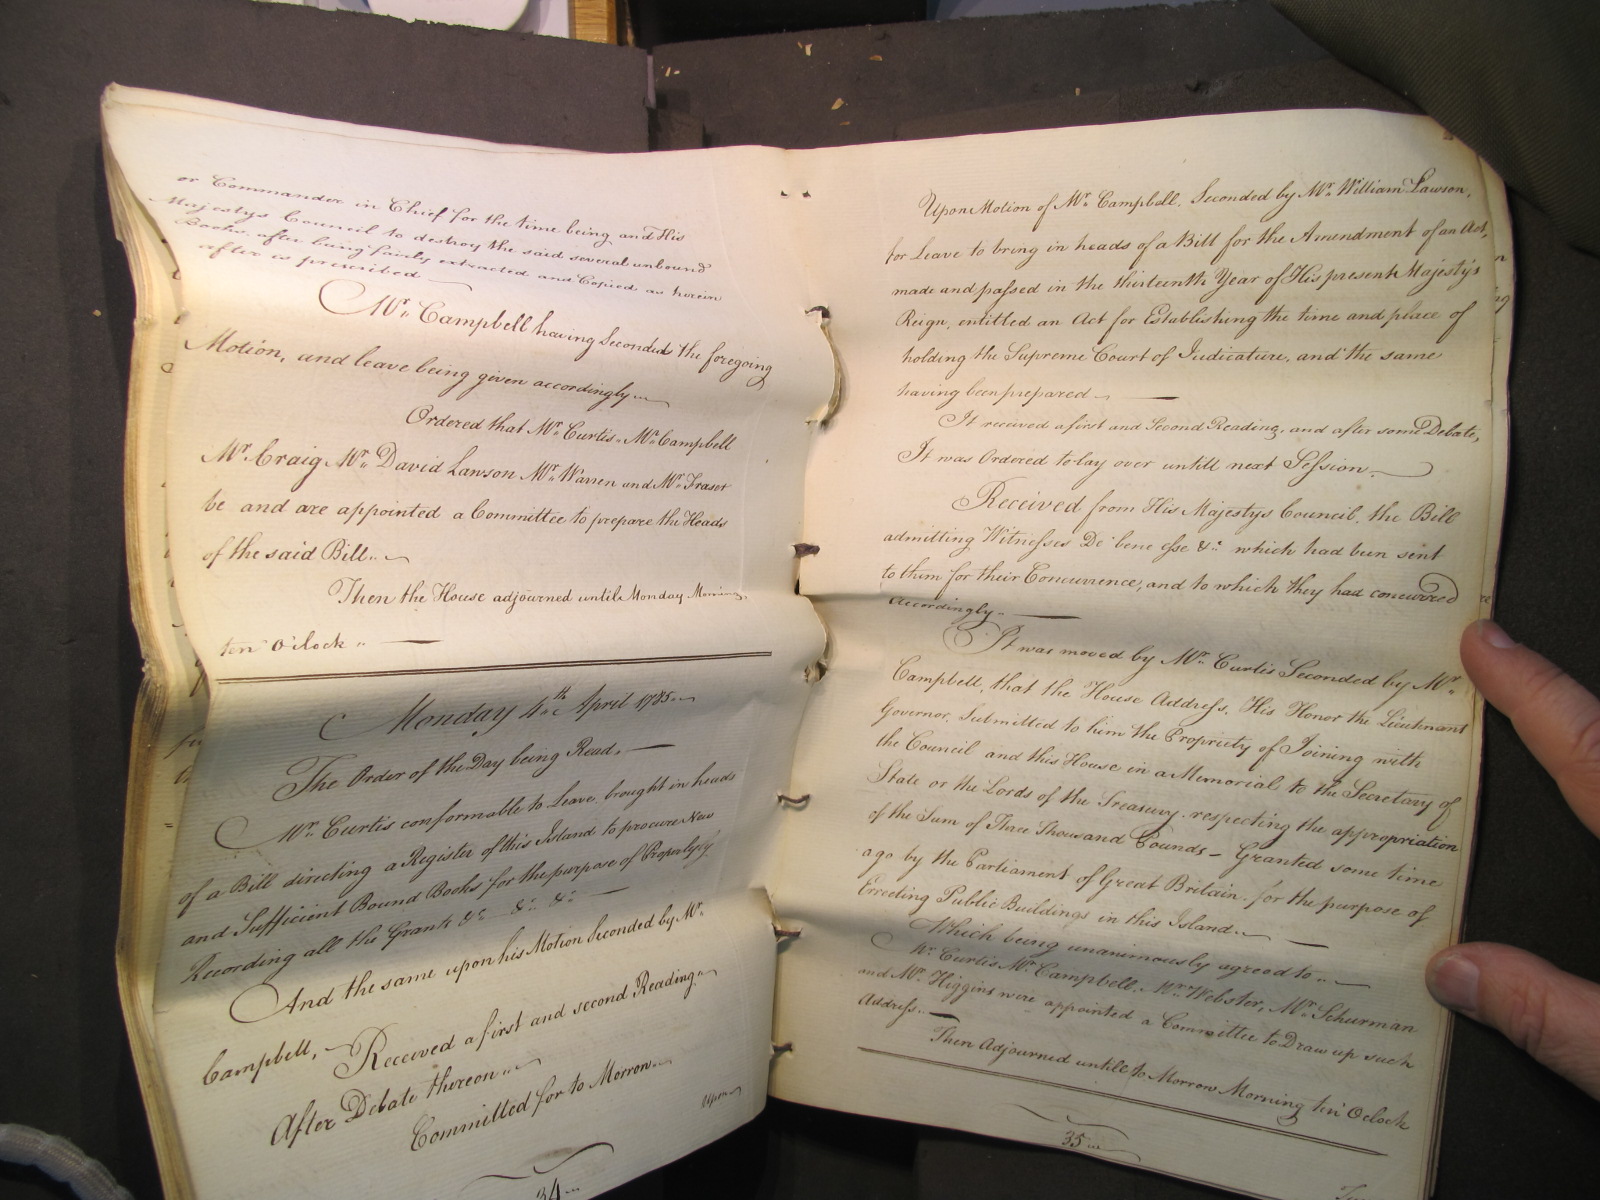 or Commander in Chief for the time being and His
Majestys Council to destroy the said several unbound
Books, after being fairly extracted and Copied as herein
after is prescribed
Mr. Campbell having Seconded the foregoing
Motion, and leave being given accordingly
Ordered that Mr. Curtis, Mr. Campbell
Mr. Craig Mr. David Lawson Mr. Warren and Mr. Fraser
be and are appointed a Committee to prepare the Heads
of the said Bill.
Then the House adjourned until Monday Morning
ten O'Clock
Monday 4th April 1785
The Order of the Day being Read,
Mr. Curtis conformable to Leave, brought in heads
of a Bill directing a Register of this Island to procure New
and Sufficient Bound Books for the purpose of Properly
Recording all the Grants &c. &c. &c.
And the same upon his Motion Seconded by Mr.
Campbell,
Received a first and second Reading
After Debate thereon
Committed for to Morrow
Upon
34
Upon Motion of Mr. Campbell, Seconded by Mr. William Lawson,
for Leave to bring in heads of a Bill for the Amendment of an Act,
made and passed in the thirteenth Year of His present Majesty's
Reign, entitled an Act for Establishing the time and place of
holding the Supreme Court of Judicature, and the same
having been prepared
It received a first and Second Reading, and after some Debate,
It was Ordered to lay over untill next Session
Received from His Majestys Council, the Bill
admitting Witnesses De bene esse &c. which had been sent
to them for their Concurrence, and to which they had concurred
accordingly
It was moved by Mr. Curtis Seconded by Mr.
Campbell, that the House Address, His Honor the Lieutenant
Governor, Submitted to him the Propriety of Joining with
the Council and this House in a Memorial to the Secretary of
State or the Lords of the Treasury, respecting the appropriation
of the Sum of Three Thousand Pounds – Granted some time
ago by the Parliament of Great Britain, for the purpose of
Erecting Public Buildings in this Island.
Which being unanimously agreed to
Mr. Curtis Mr. Campbell, Mr. Webster, Mr. Schurman
and Mr. Higgins were appointed a Committee to Draw up such
Address.
Then Adjourned untill to Morrow Morning ten OClock
35